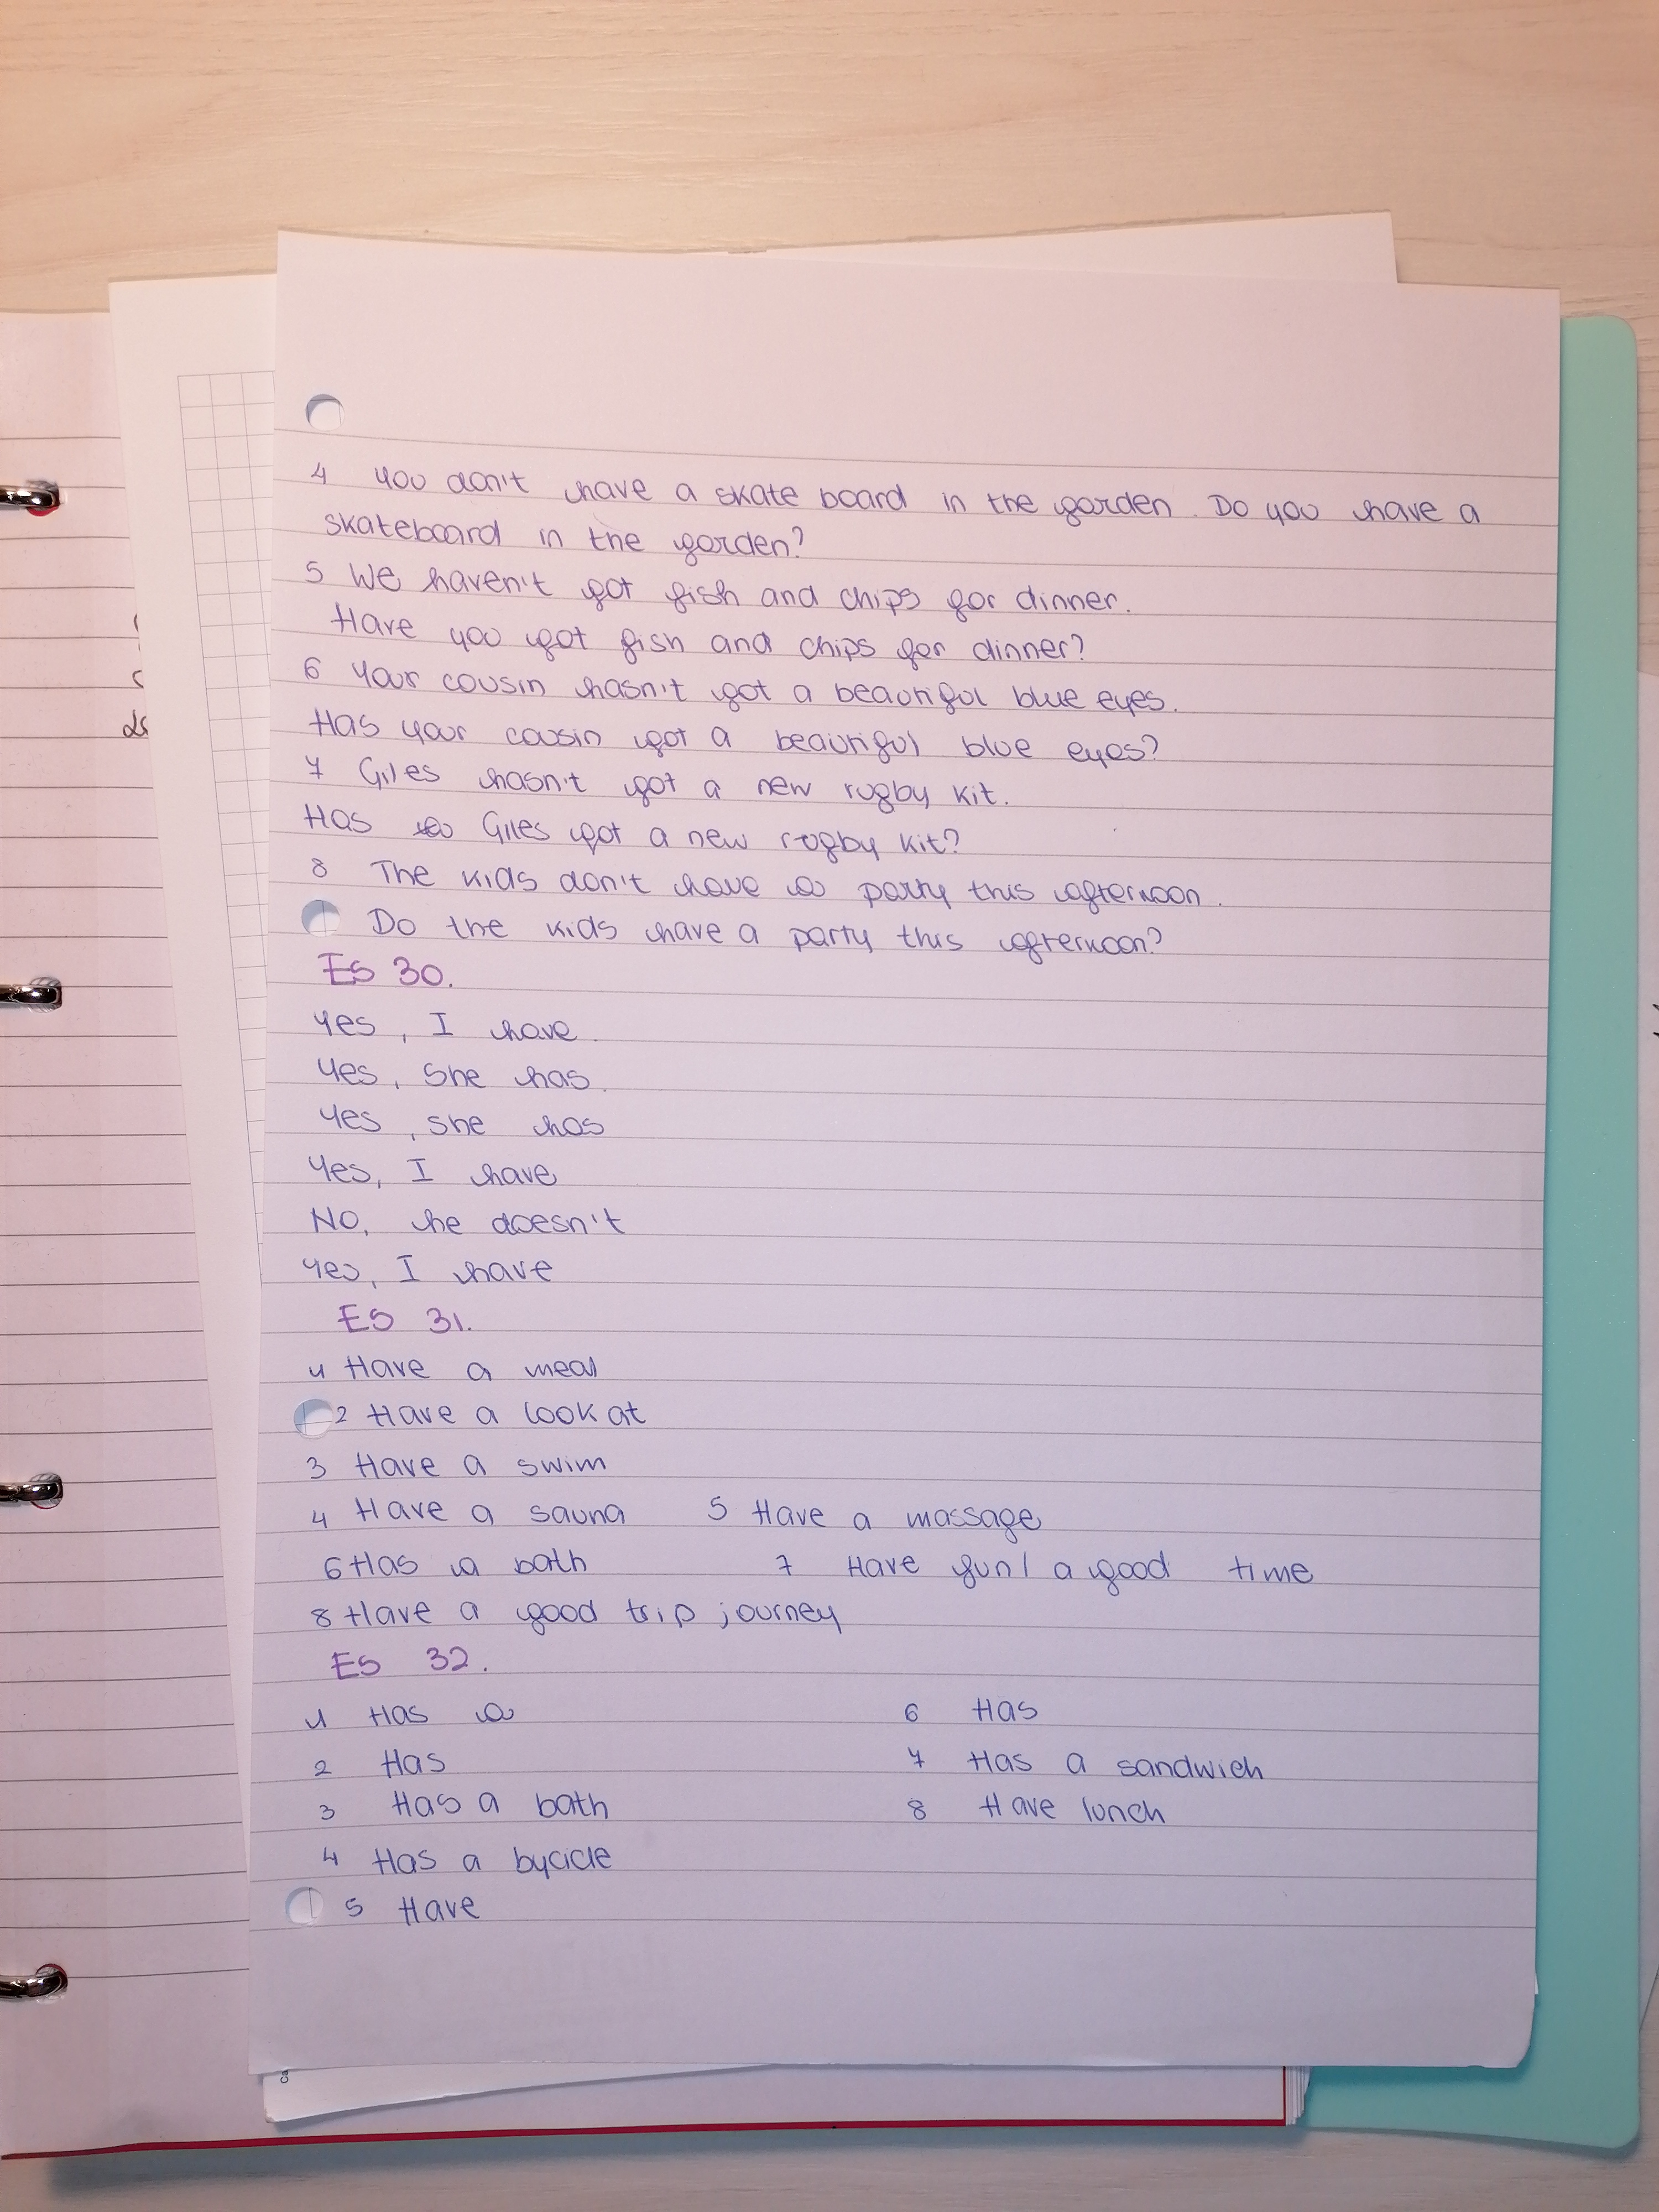 4 You don't have a skate board in the garden. Do you have a
skateboard in the garden?
5 We haven't got fish and chips for dinner.
Have you got fish and chips for dinner?
6 Your cousin hasn't got a beautiful blue eyes.
Has your cousin got a beautiful blue eyes?
7 Giles hasn't got a new rugby kit.
Has Giles got a new rugby kit?
8 The kids don't have a party this afternoon.
Do the kids have a party this afternoon?
Es 30.
Yes, I have.
Yes, She has.
Yes, she has
Yes, I have
No, he doesn't
Yes, I have
Es 31.
1 Have a meal
2 Have a look at
3 Have a swim
4 Have a sauna 5 Have a massage
6 Has a bath 7 Have fun/ a good time
8 Have a good trip journey
Es 32.
1 Has a 6 Has
2 Has 7 Has a sandwich
3 Has a bath 8 Have lunch
4 Has a bycicle
5 Have